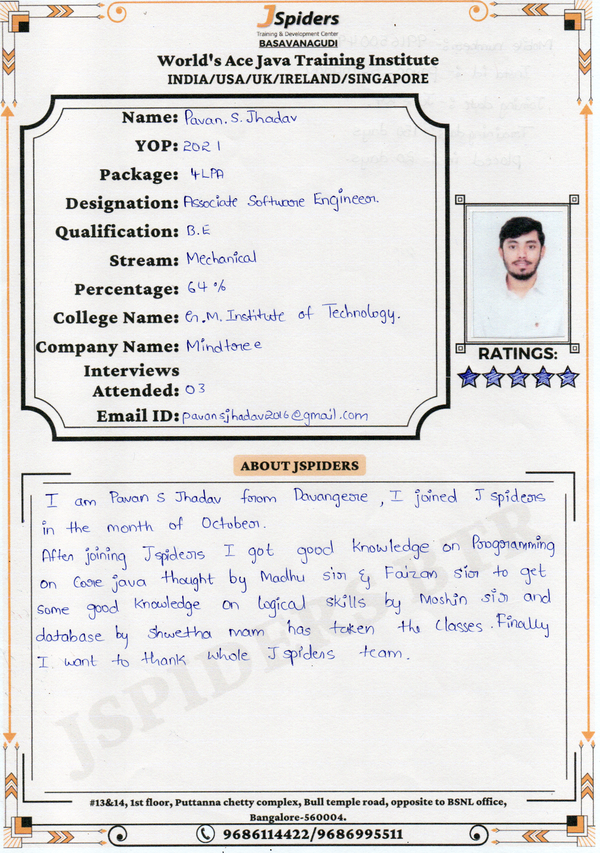 JSpiders
Training & Development Center
BASAVANAGUDI
World's Ace Java Training Institute
INDIA/USA/UK/IRELAND/SINGAPORE
Name: Pavan. S. Jhadav
YOP: 2021
Package: 4LPA
Designation: Associate Software Engineer.
Qualification: B.E
Stream: Mechanical
Percentage: 64 %
College Name: G.M. Institute of Technology.
Company Name: Mindtree
Interviews
Attended: 03
Email ID: pavansjhadav2016@gmail.com
RATINGS:
ABOUT JSPIDERS
I am Pavan S Jhadav from Davangere, I joined J spiders
in the month of October.
After joining Jspiders I got good knowledge on Programming
on Core java thought by Madhu sir & Faizan sir to get
some good knowledge on logical skills by Moshin sir and
database by shwetha mam has taken the classes. Finally
I want to thank whole J spiders team.
JSPIDERS BTR
#13&14, 1st floor, Puttanna chetty complex, Bull temple road, opposite to BSNL office,
Bangalore-560004.
9686114422/9686995511